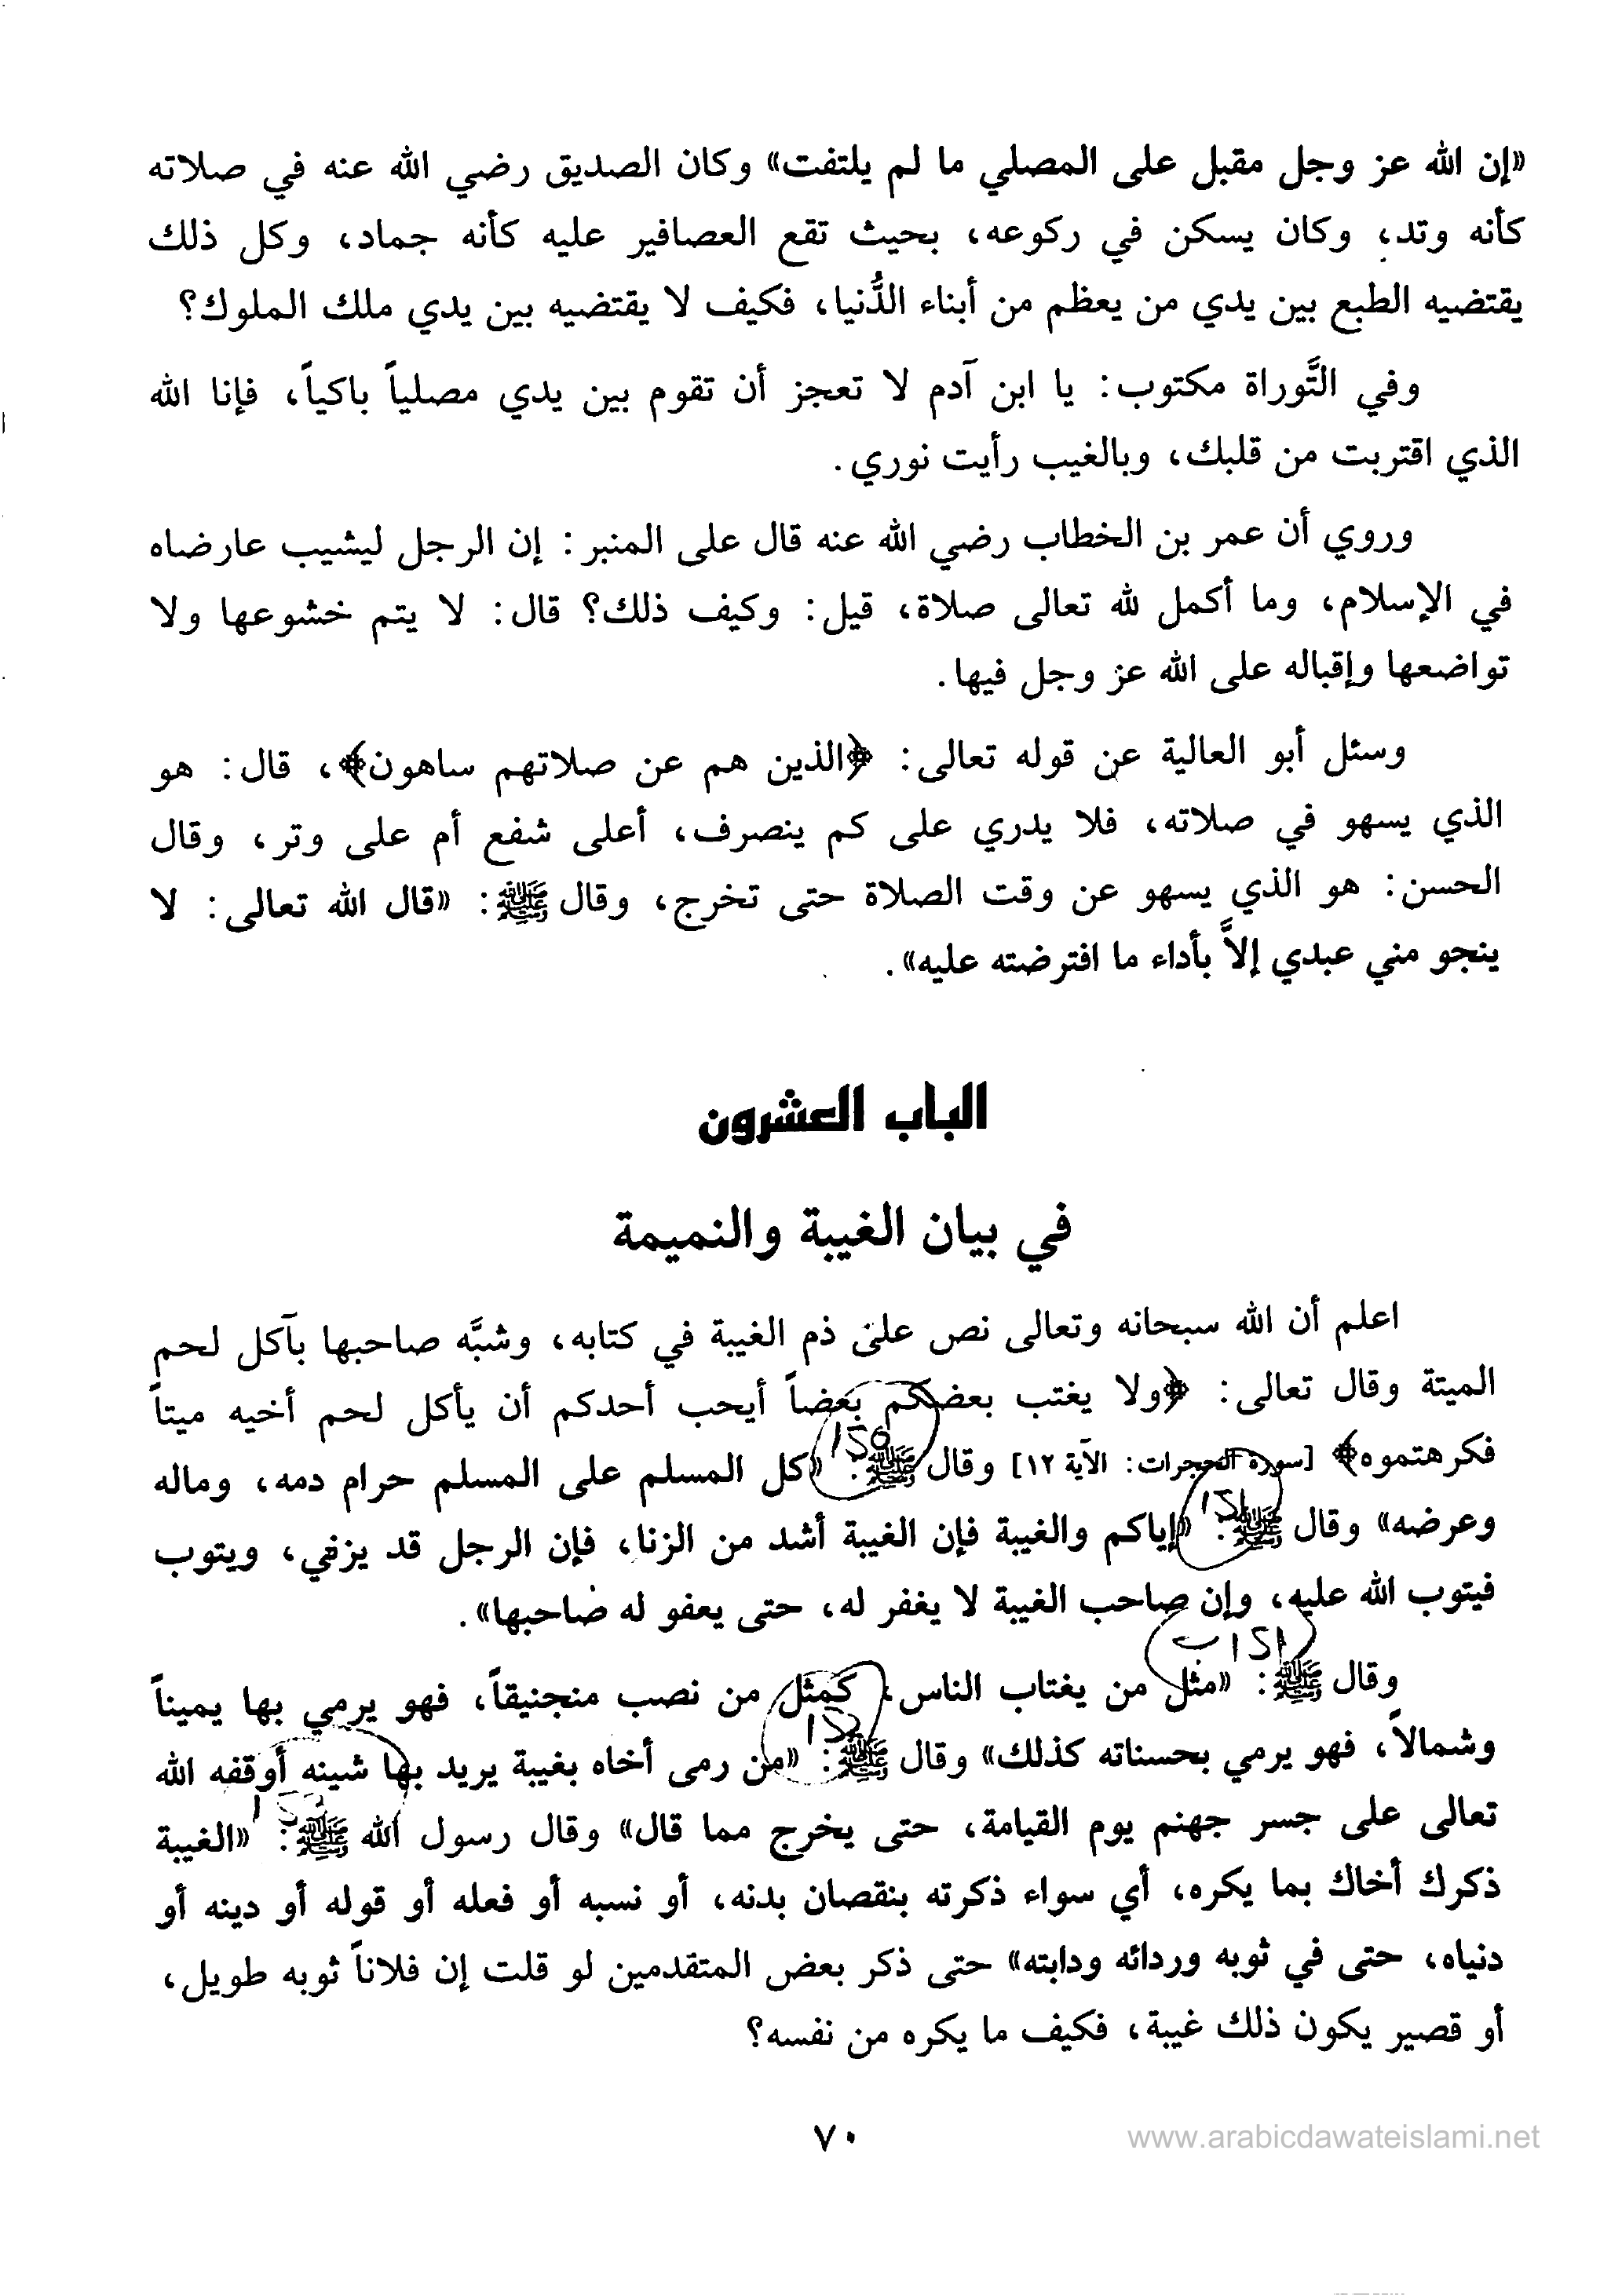 «إن الله عز وجل مقبل على المصلي ما لم يلتفت» وكان الصديق رضي الله عنه في صلاته
كأنه وتد، وكان يسكن في ركوعه، بحيث تقع العصافير عليه كأنه جماد، وكل ذلك
يقتضيه الطبع بين يدي من يعظم من أبناء الدُّنيا، فكيف لا يقتضيه بين يدي ملك الملوك؟
وفي التَّوراة مكتوب: يا ابن آدم لا تعجز أن تقوم بين يدي مصلياً باكياً، فإنا الله
الذي اقتربت من قلبك، وبالغيب رأيت نوري.
وروي أن عمر بن الخطاب رضي الله عنه قال على المنبر: إن الرجل ليشيب عارضاه
في الإسلام، وما أكمل لله تعالى صلاة، قيل: وكيف ذلك؟ قال: لا يتم خشوعها ولا
تواضعها وإقباله على الله عز وجل فيها.
وسئل أبو العالية عن قوله تعالى: ﴿الذين هم عن صلاتهم ساهون﴾، قال: هو
الذي يسهو في صلاته، فلا يدري على كم ينصرف، أعلى شفع أم على وتر، وقال
الحسن: هو الذي يسهو عن وقت الصلاة حتى تخرج، وقال ﷺ: «قال الله تعالى: لا
ينجو مني عبدي إلاَّ بأداء ما افترضته عليه».
الباب العشرون
في بيان الغيبة والنميمة
اعلم أن الله سبحانه وتعالى نص على ذم الغيبة في كتابه، وشبَّه صاحبها بآكل لحم
الميتة وقال تعالى: ﴿ولا يغتب بعضكم بعضاً أيحب أحدكم أن يأكل لحم أخيه ميتاً
فكرهتموه﴾ [سورة الحجرات: الآية ١٢] وقال ﷺ: «كل المسلم على المسلم حرام دمه، وماله
وعرضه» وقال ﷺ: «إياكم والغيبة فإن الغيبة أشد من الزنا، فإن الرجل قد يزني، ويتوب
فيتوب الله عليه، وإن صاحب الغيبة لا يغفر له، حتى يعفو له صاحبها».
وقال ﷺ: «مثل من يغتاب الناس، كمثل من نصب منجنيقاً، فهو يرمي بها يميناً
وشمالاً، فهو يرمي بحسناته كذلك» وقال ﷺ: «من رمى أخاه بغيبة يريد بها شينه أوقفه الله
تعالى على جسر جهنم يوم القيامة، حتى يخرج مما قال» وقال رسول الله ﷺ: «الغيبة
ذكرك أخاك بما يكره، أي سواء ذكرته بنقصان بدنه، أو نسبه أو فعله أو قوله أو دينه أو
دنياه، حتى في ثوبه وردائه ودابته» حتى ذكر بعض المتقدمين لو قلت إن فلاناً ثوبه طويل،
أو قصير يكون ذلك غيبة، فكيف ما يكره من نفسه؟
٧٠
www.arabicdawateislami.net